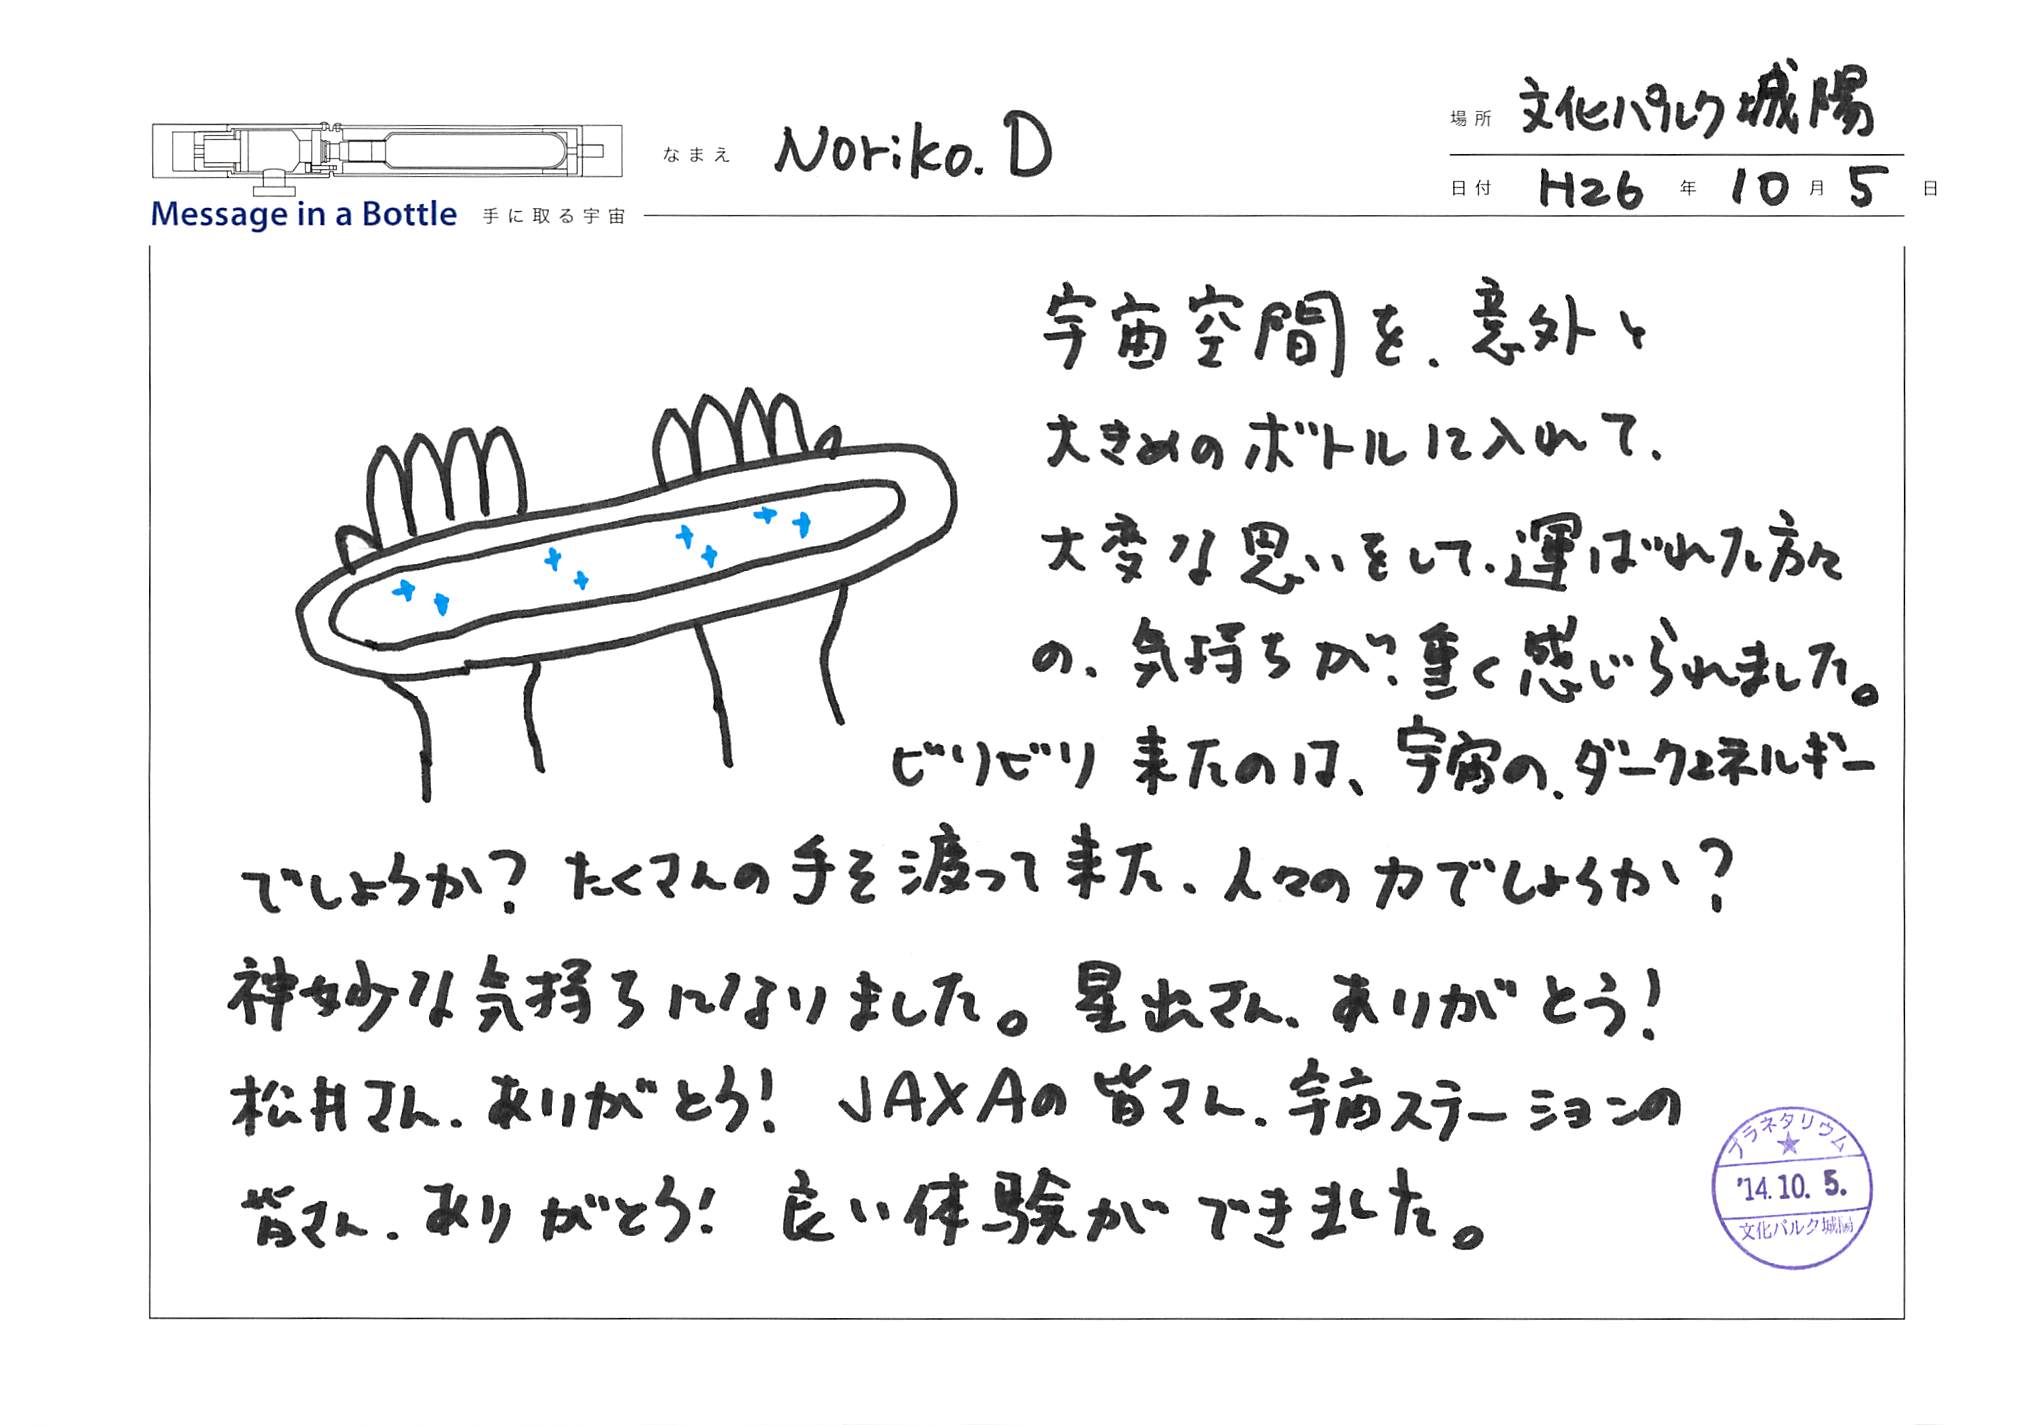 なまえ Noriko. D
場所 文化パルク城陽
日付 H26 年 10 月 5 日
Message in a Bottle 手に取る宇宙
宇宙空間を、意外と
大きめのボトルに入れて、
大変な思いをして、運ばれた方々
の、気持ちが、重く感じられました。
ビリビリ来たのは、宇宙の、ダークエネルギー
でしょうか？ たくさんの手を渡って来た、人々の力でしょうか？
神妙な気持ちになりました。 星出さん、ありがとう！
松井さん、ありがとう！ JAXAの皆さん、宇宙ステーションの
皆さん、ありがとう！ 良い体験ができました。
プラネタリウム
★
'14.10.5.
文化パルク城陽